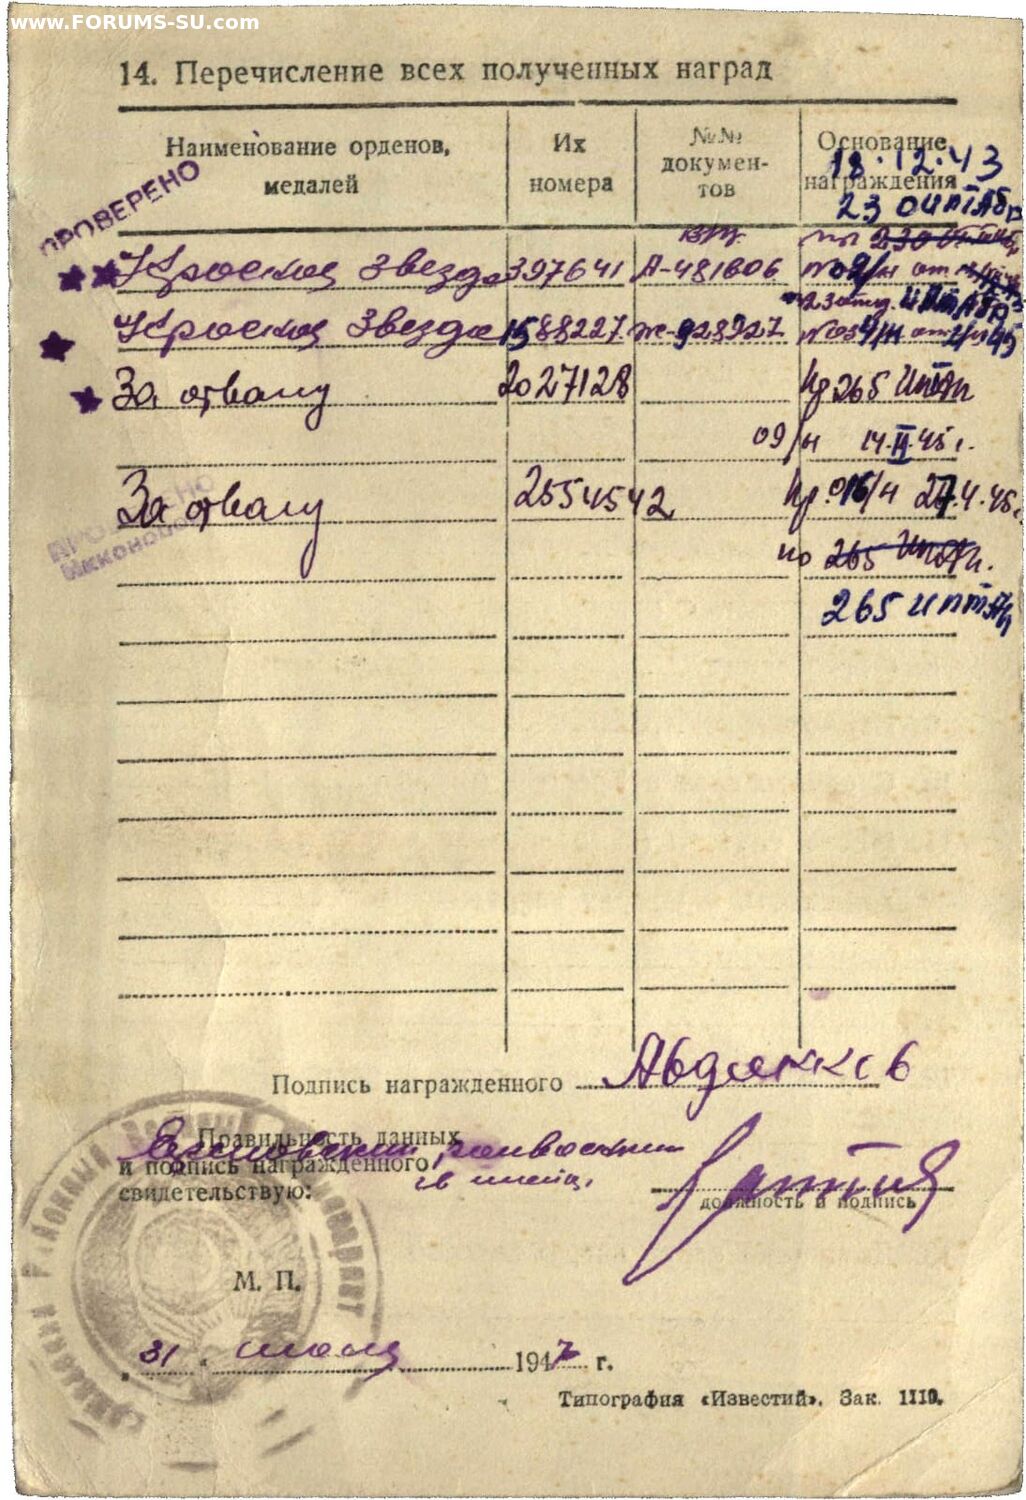 www.FORUMS-SU.com
14. Перечисление всех полученных наград
Наименование орденов, медалей
Их номера
№№ докумен-тов
Основание награждения
18.12.43
ПРОВЕРЕНО
23 ОИПТАБр
Красная Звезда 397641 А-481606 № 02/н от
Красная Звезда 1588227 Ж-928927 № 03/н от
За отвагу 2027128 пр 265 ИПТАП
09/н 14.II.45 г.
За отвагу 2554542 Пр. 016/н 27.4.45 г.
ПРОВЕРЕНО
по 265 ИПТАП.
265 ИПТАП
Подпись награжденного
Правильность данных
и подпись награжденного
свидетельствую:
должность и подпись
М. П.
"31" июля 1947 г.
Типография «Известий». Зак. 1110.